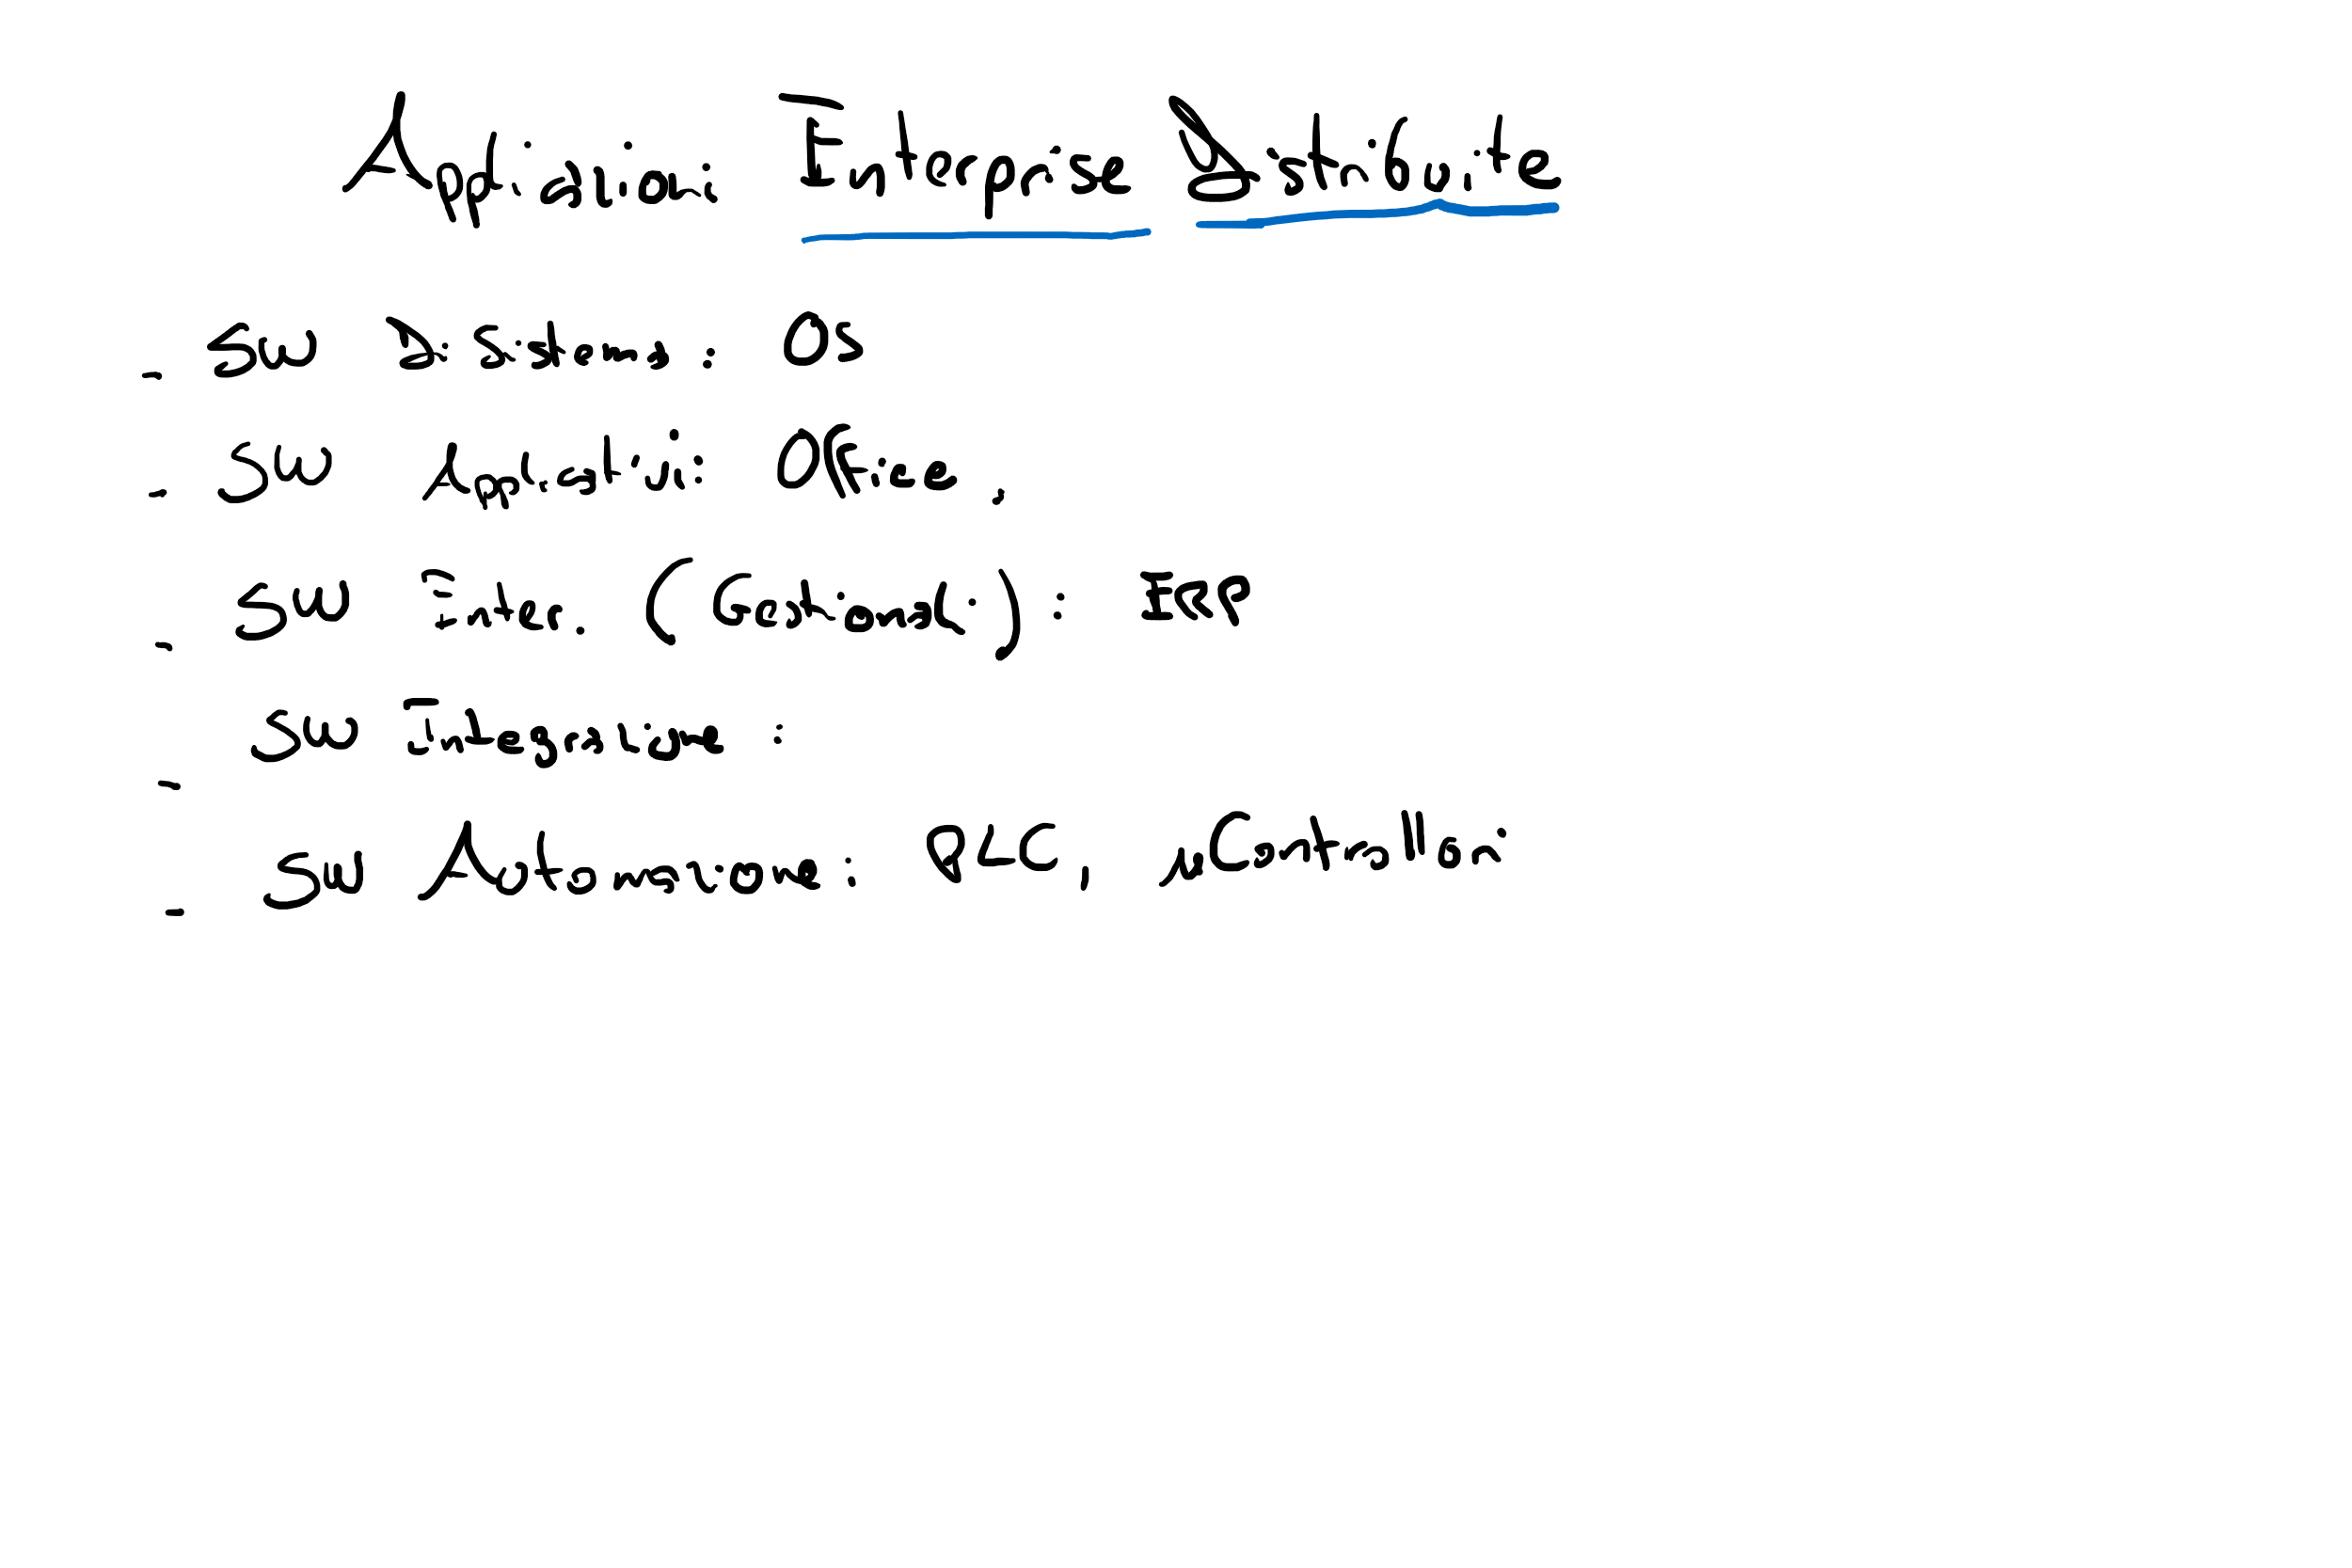 Applicazioni Enterprise Distribuite
- SW Di Sistema: OS
- SW Applicativi: Office,
- SW Enter. (Gestionali): ERP
- SW Integrazione:
- SW Automazione: PLC, μController